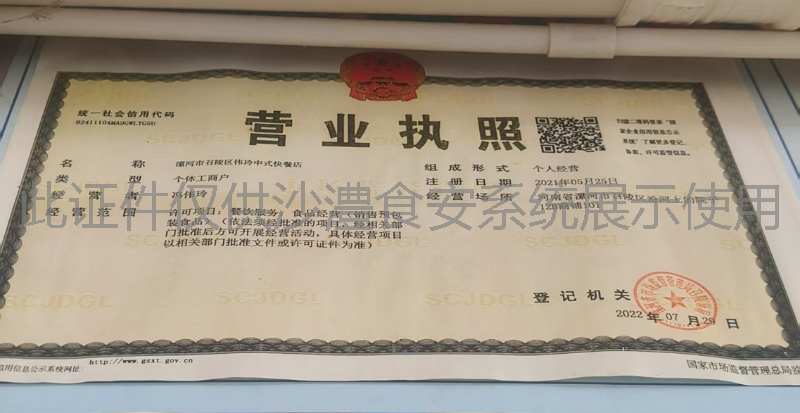 统一社会信用代码
92411104MA9GWLTG5U
营业执照
扫描二维码登录“国
家企业信用信息公示
系统”了解更多登记、
备案、许可监管信息。
名称 漯河市召陵区伟玲中式快餐店
类型 个体工商户
经营者 冯伟玲
经营范围 许可项目：餐饮服务；食品经营（销售预包
装食品）（依法须经批准的项目，经相关部
门批准后方可开展经营活动，具体经营项目
以相关部门批准文件或许可证件为准）
组成形式 个人经营
注册日期 2021年05月25日
经营场所 河南省漯河市召陵区
128商铺101
此证件仅供沙澧食安系统展示使用
SCJDGL
登记机关
2022年07月29日
信用信息公示系统网址:
http://www.gsxt.gov.cn
国家市场监督管理总局